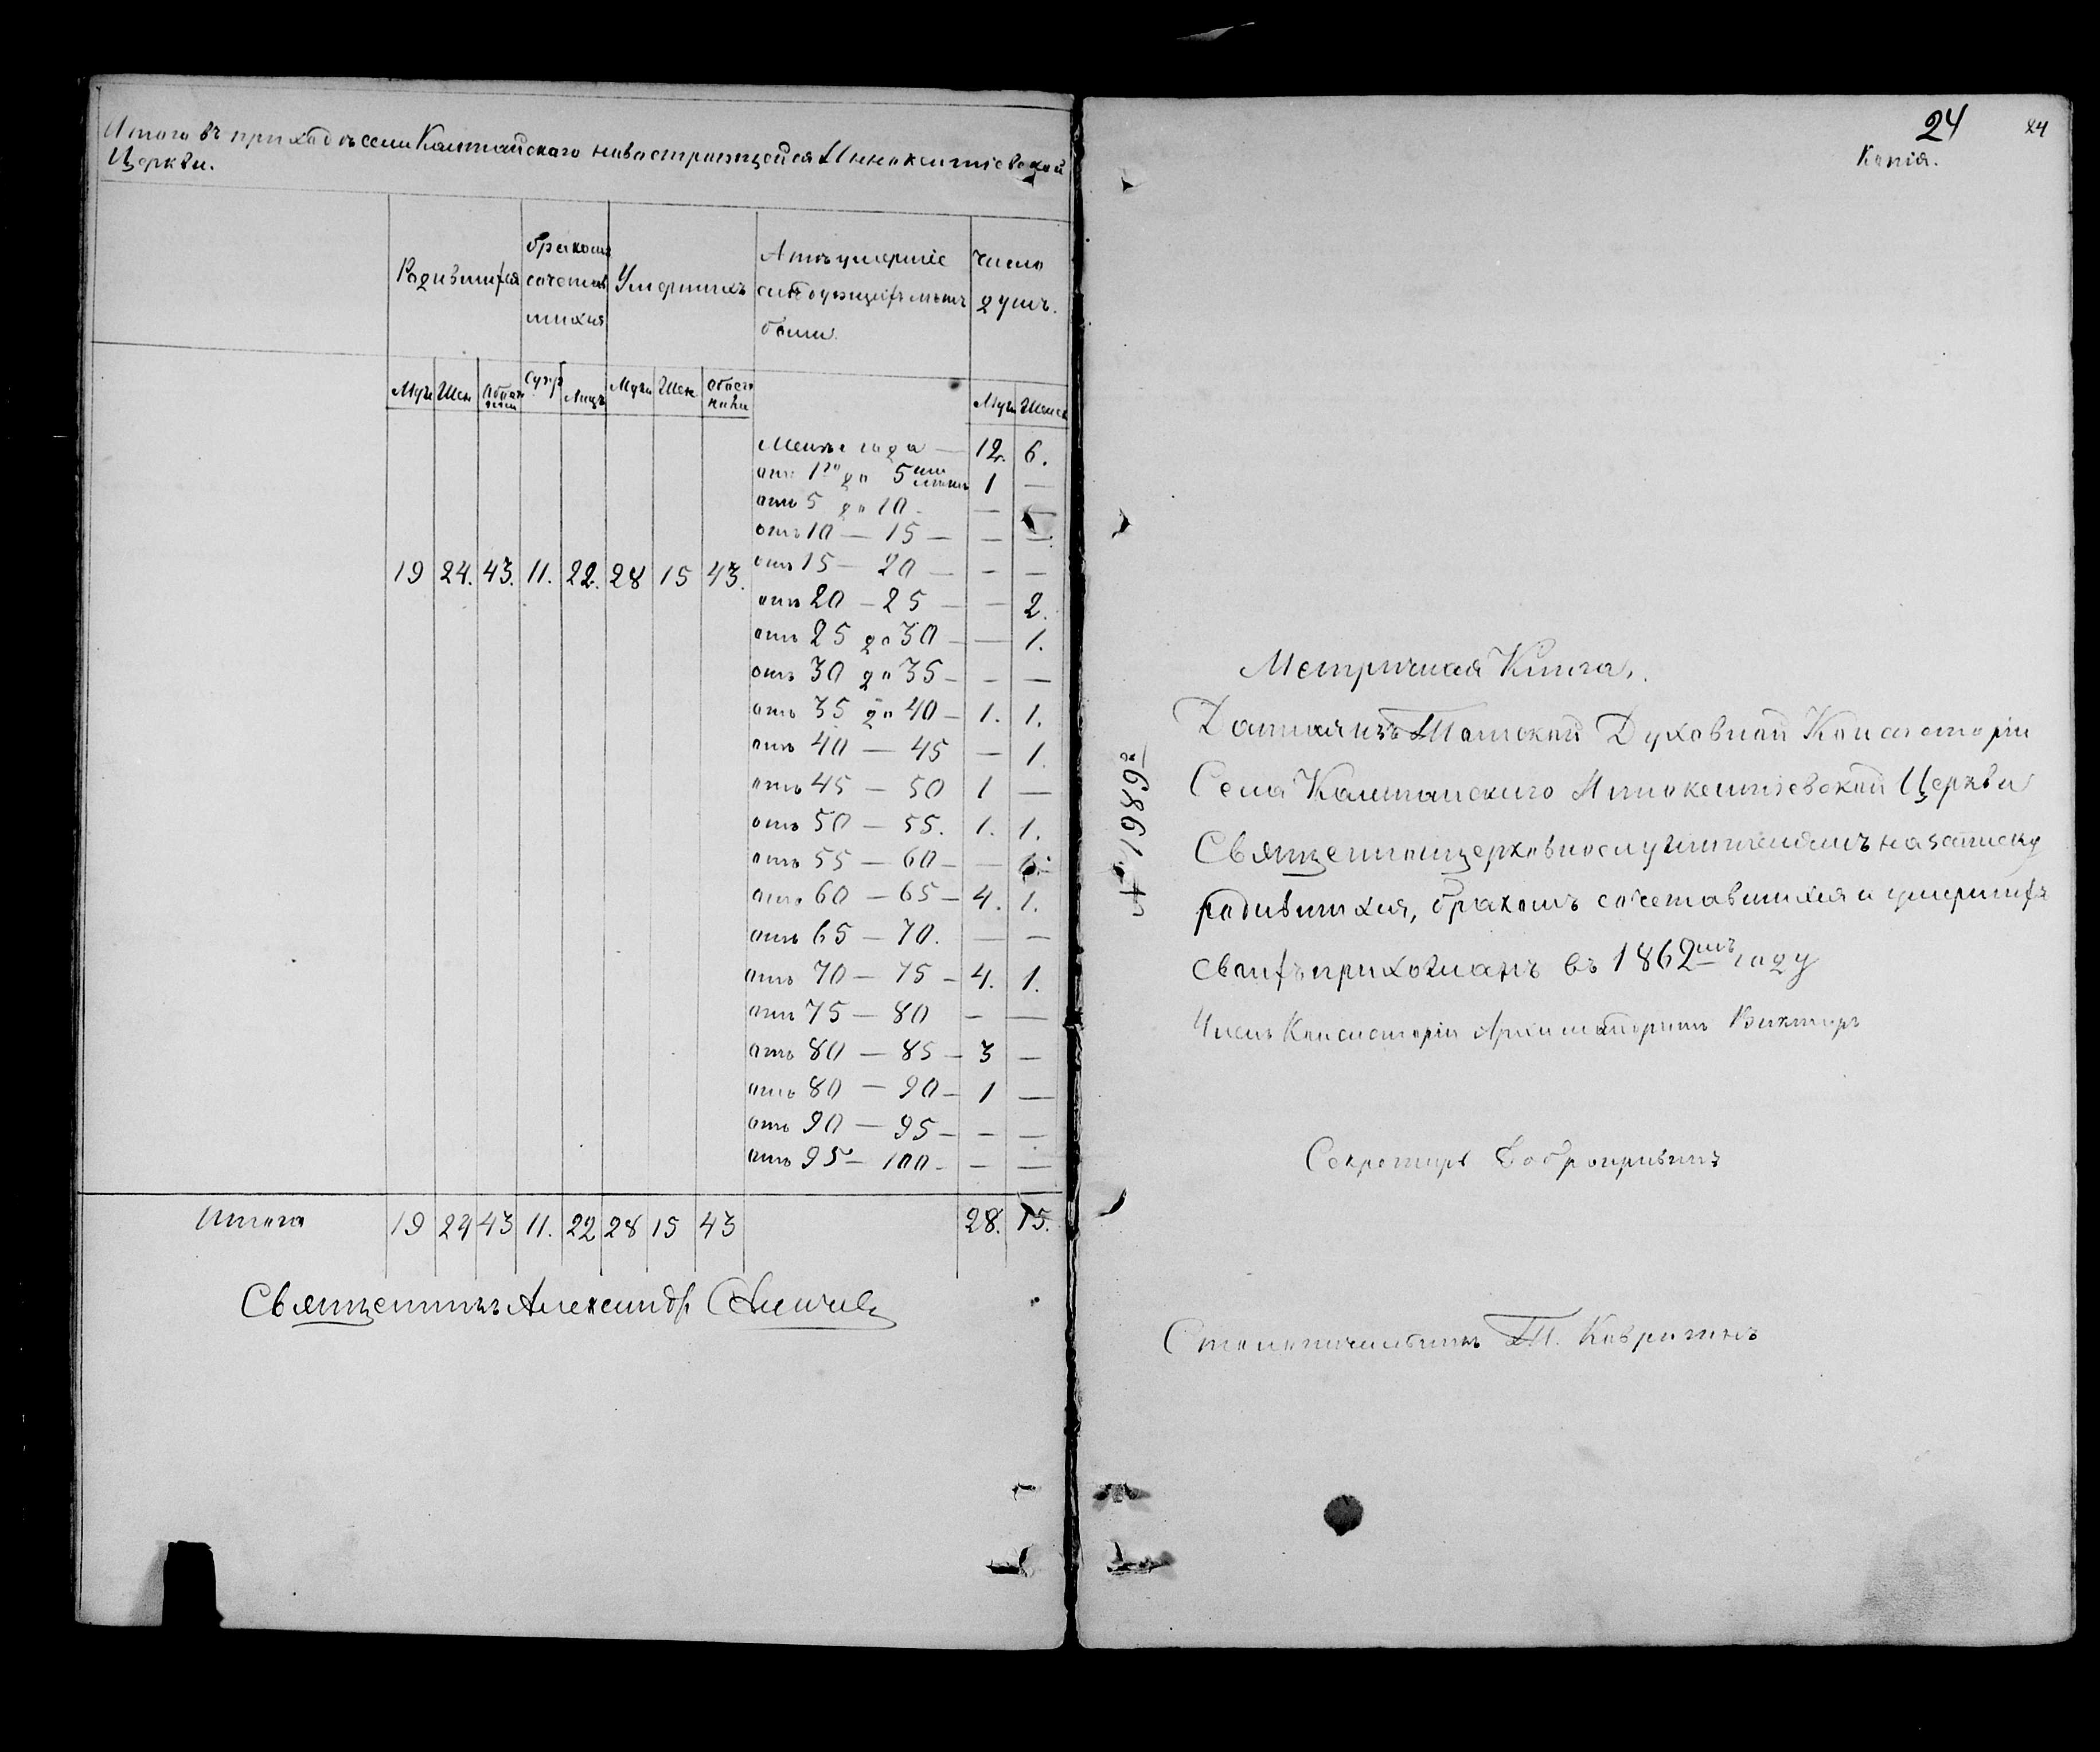 Итого въ приходѣ села Калтайскаго новостроющейся Иннокентіевской
Церкви.
Родившихся
бракомъ
сочетав
шихся
Умершихъ
Лѣта умершіе
числο
душъ.
Муж Жен
Муж Жен
Муж Женск
Менѣе года — 12. 6.
отъ 1го до 5ти лѣтъ 1 —
отъ 5 до 10 — —
отъ 10 — 15 — — —
отъ 15 — 20 — — —
19 24. 43. 11. 22. 28 15 43.
отъ 20 — 25 — — 2.
отъ 25 до 30 — — 1.
отъ 30 до 35 — — —
отъ 35 до 40 — 1. 1.
отъ 40 — 45 — 1.
отъ 45 — 50 1 —
отъ 50 — 55. 1. 1.
отъ 55 — 60 — —
отъ 60 — 65 — 4. 1.
отъ 65 — 70. — —
отъ 70 — 75 — 4. 1.
отъ 75 — 80 — —
отъ 80 — 85 — 3 —
отъ 80 — 90 — 1 —
отъ 90 — 95 — — —
отъ 95 — 100 — — —
Итого 19 24 43 11. 22 28 15 43 28. 15.
Священникъ Александръ
24 24
Копія.
Метричная Книга,
Данная изъ Томской Духовной Консисторіи
Села Калтайскаго Иннокентіевской Церкви
Священноцерковнослужителямъ на записку
родившихся, бракомъ сочетавшихся и умершихъ
своихъ прихожанъ въ 1862мъ году
Членъ Консисторіи Архимандритъ Викторъ
Секретарь
Столоначальникъ
№ 1689